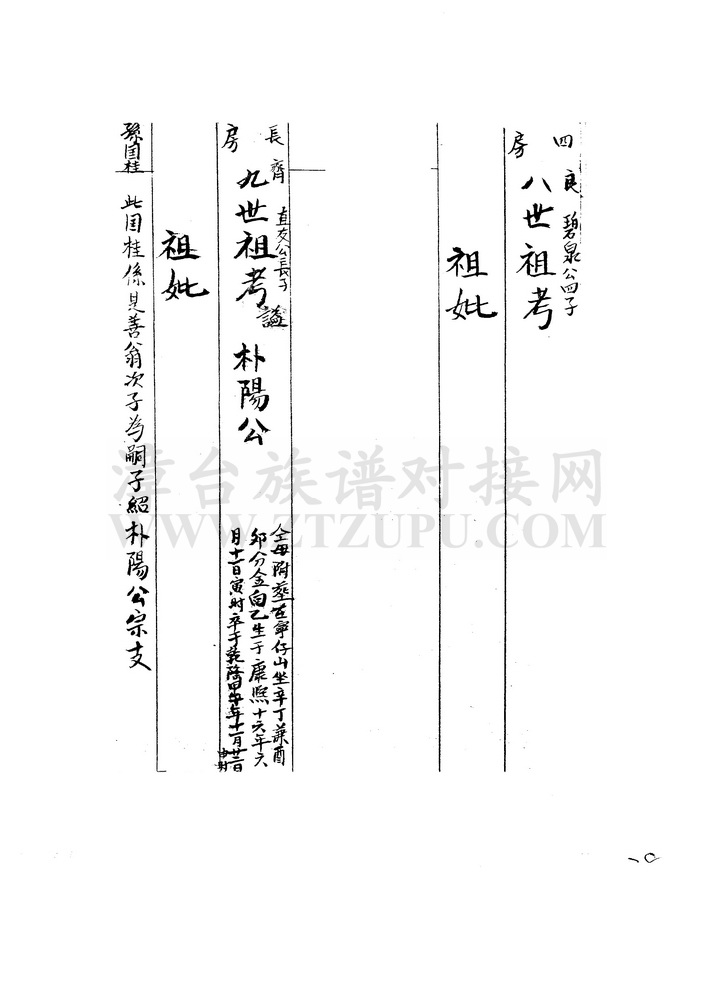 四房
良
碧泉公四子
八世祖考
祖妣
長房
齊
直友公長子
九世祖考 謚 朴陽公
仝母附塟在寧仔山坐辛丁兼酉
卯分金向乙生于康熙十六年六
月十一日寅時卒于乾隆甲午年十一月廿二日
申時
祖妣
孫国桂
此国桂係見善翁次子為嗣子紹朴陽公宗支
漳台族谱对接网
WWW.ZTZUPU.COM